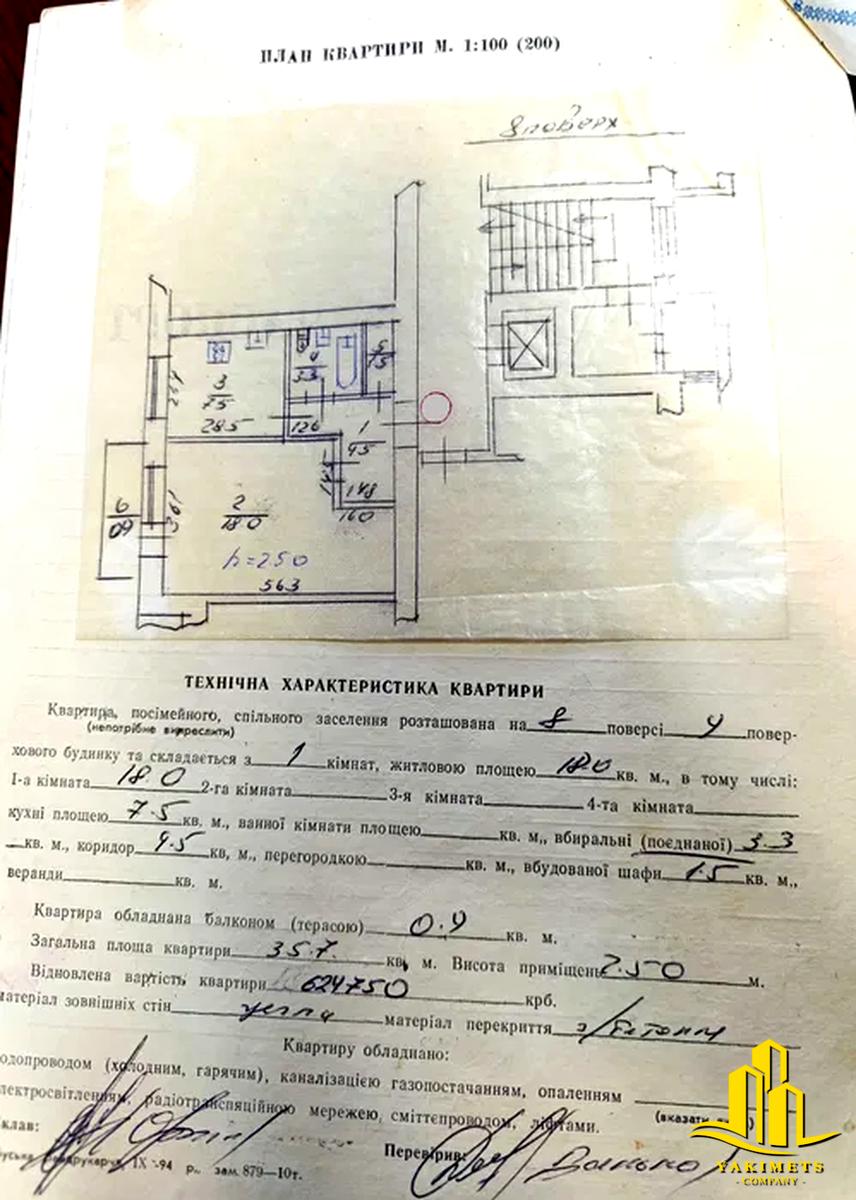 ПЛАН КВАРТИРИ М. 1:100 (200)
8 поверх
3
7.5
285
4
3.3
5
1.5
126
1
4.5
148
160
6
0.9
2
18.0
h=2.50
563
ТЕХНІЧНА ХАРАКТЕРИСТИКА КВАРТИРИ
Квартира, посімейного, спільного заселення розташована на 8 поверсі 9 повер-
(непотрібне викреслити)
хового будинку та складається з 1 кімнат, житловою площею 18.0 кв. м., в тому числі:
І-а кімната 18.0 2-га кімната 3-я кімната 4-та кімната
кухні площею 7.5 кв. м., ванної кімнати площею кв. м., вбиральні (поєднаної) 3.3
кв. м., коридор 4.5 кв, м., перегородкою кв. м., вбудованої шафи 1.5 кв. м.,
веранди кв. м.
Квартира обладнана балконом (терасою) 0.9 кв. м.
Загальна площа квартири 35.7 кв. м. Висота приміщень 2.50 м.
Відновлена вартість квартири 624750 крб.
матеріал зовнішніх стін цегла матеріал перекриття з/бетонні
Квартиру обладнано:
одопроводом (холодним, гарячим), каналізацією газопостачанням, опаленням
лектросвітленням, радіотрансляційною мережею, сміттєпроводом, ліфтами.
клав: Перевірив:
ІХ-94 р. зам. 879—10т.
YAKIMETS
- COMPANY -